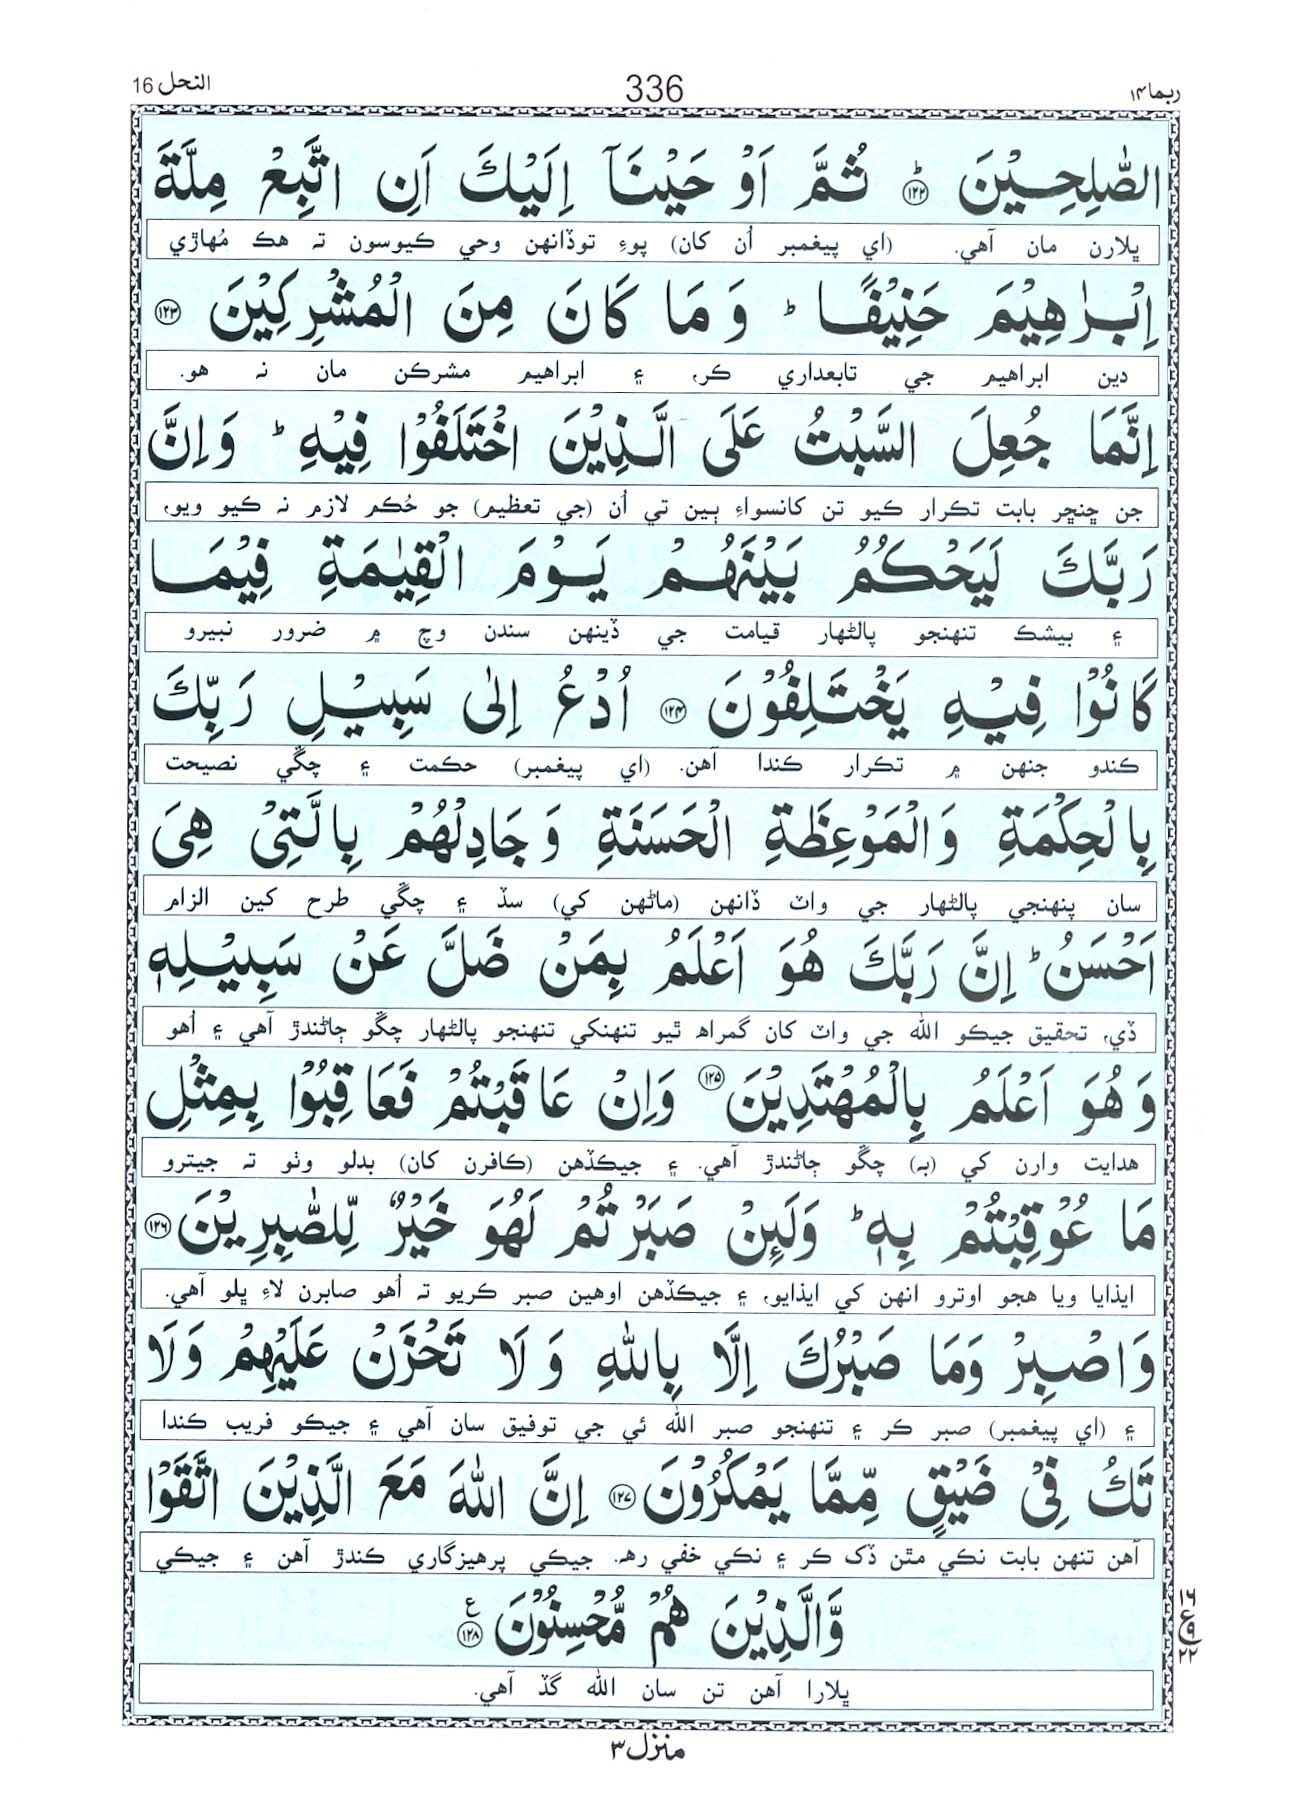 النحل 16
336
ربما ۱۴
الصّٰلِحِيْنَ ؕ ﴿۱۲۲﴾ ثُمَّ اَوْحَيْنَاۤ اِلَيْكَ اَنِ اتَّبِعْ مِلَّةَ
ڀلارن مان آهي. (اي پيغمبر اُن کان) پوءِ توڏانهن وحي ڪيوسون تہ هڪ مُهاڙي
اِبْرٰهِيْمَ حَنِيْفًا ؕ وَمَا كَانَ مِنَ الْمُشْرِكِيْنَ ﴿۱۲۳﴾
دين ابراهيم جي تابعداري ڪر، ۽ ابراهيم مشرڪن مان نہ هو.
اِنَّمَا جُعِلَ السَّبْتُ عَلَى الَّذِيْنَ اخْتَلَفُوْا فِيْهِ ؕ وَاِنَّ
جن ڇنڇر بابت تڪرار ڪيو تن کانسواءِ ٻين تي اُن (جي تعظيم) جو حُڪم لازم نہ ڪيو ويو،
رَبَّكَ لَيَحْكُمُ بَيْنَهُمْ يَوْمَ الْقِيٰمَةِ فِيْمَا
۽ بيشڪ تنهنجو پالڻهار قيامت جي ڏينهن سندن وچ ۾ ضرور نبيرو
كَانُوْا فِيْهِ يَخْتَلِفُوْنَ ﴿۱۲۴﴾ اُدْعُ اِلٰى سَبِيْلِ رَبِّكَ
ڪندو جنهن ۾ تڪرار ڪندا آهن. (اي پيغمبر) حڪمت ۽ چڱي نصيحت
بِالْحِكْمَةِ وَالْمَوْعِظَةِ الْحَسَنَةِ وَجَادِلْهُمْ بِالَّتِيْ هِيَ
سان پنهنجي پالڻهار جي واٽ ڏانهن (ماڻهن کي) سڏ ۽ چڱي طرح کين الزام
اَحْسَنُ ؕ اِنَّ رَبَّكَ هُوَ اَعْلَمُ بِمَنْ ضَلَّ عَنْ سَبِيْلِهٖ
ڏي، تحقيق جيڪو الله جي واٽ کان گمراھ ٿيو تنهنکي تنهنجو پالڻهار چڱو ڄاڻندڙ آهي ۽ اُهو
وَهُوَ اَعْلَمُ بِالْمُهْتَدِيْنَ ﴿۱۲۵﴾ وَاِنْ عَاقَبْتُمْ فَعَاقِبُوْا بِمِثْلِ
هدايت وارن کي (بہ) چڱو ڄاڻندڙ آهي. ۽ جيڪڏهن (ڪافرن کان) بدلو وٺو تہ جيترو
مَا عُوْقِبْتُمْ بِهٖ ؕ وَلَىِٕنْ صَبَرْتُمْ لَهُوَ خَيْرٌ لِّلصّٰبِرِيْنَ ﴿۱۲۶﴾
ايذايا ويا هجو اوترو انهن کي ايذايو، ۽ جيڪڏهن اوهين صبر ڪريو تہ اُهو صابرن لاءِ ڀلو آهي.
وَاصْبِرْ وَمَا صَبْرُكَ اِلَّا بِاللّٰهِ وَلَا تَحْزَنْ عَلَيْهِمْ وَلَا
۽ (اي پيغمبر) صبر ڪر ۽ تنهنجو صبر الله ئي جي توفيق سان آهي ۽ جيڪو فريب ڪندا
تَكُ فِيْ ضَيْقٍ مِّمَّا يَمْكُرُوْنَ ﴿۱۲۷﴾ اِنَّ اللّٰهَ مَعَ الَّذِيْنَ اتَّقَوْا
آهن تنهن بابت نڪي مٿن ڏک ڪر ۽ نڪي خفي رھ. جيڪي پرهيزگاري ڪندڙ آهن ۽ جيڪي
وَّالَّذِيْنَ هُمْ مُّحْسِنُوْنَ ﴿۱۲۸﴾ ع
۱۶
ع ۹
۲۲
ڀلارا آهن تن سان الله گڏ آهي.
منزل ۳